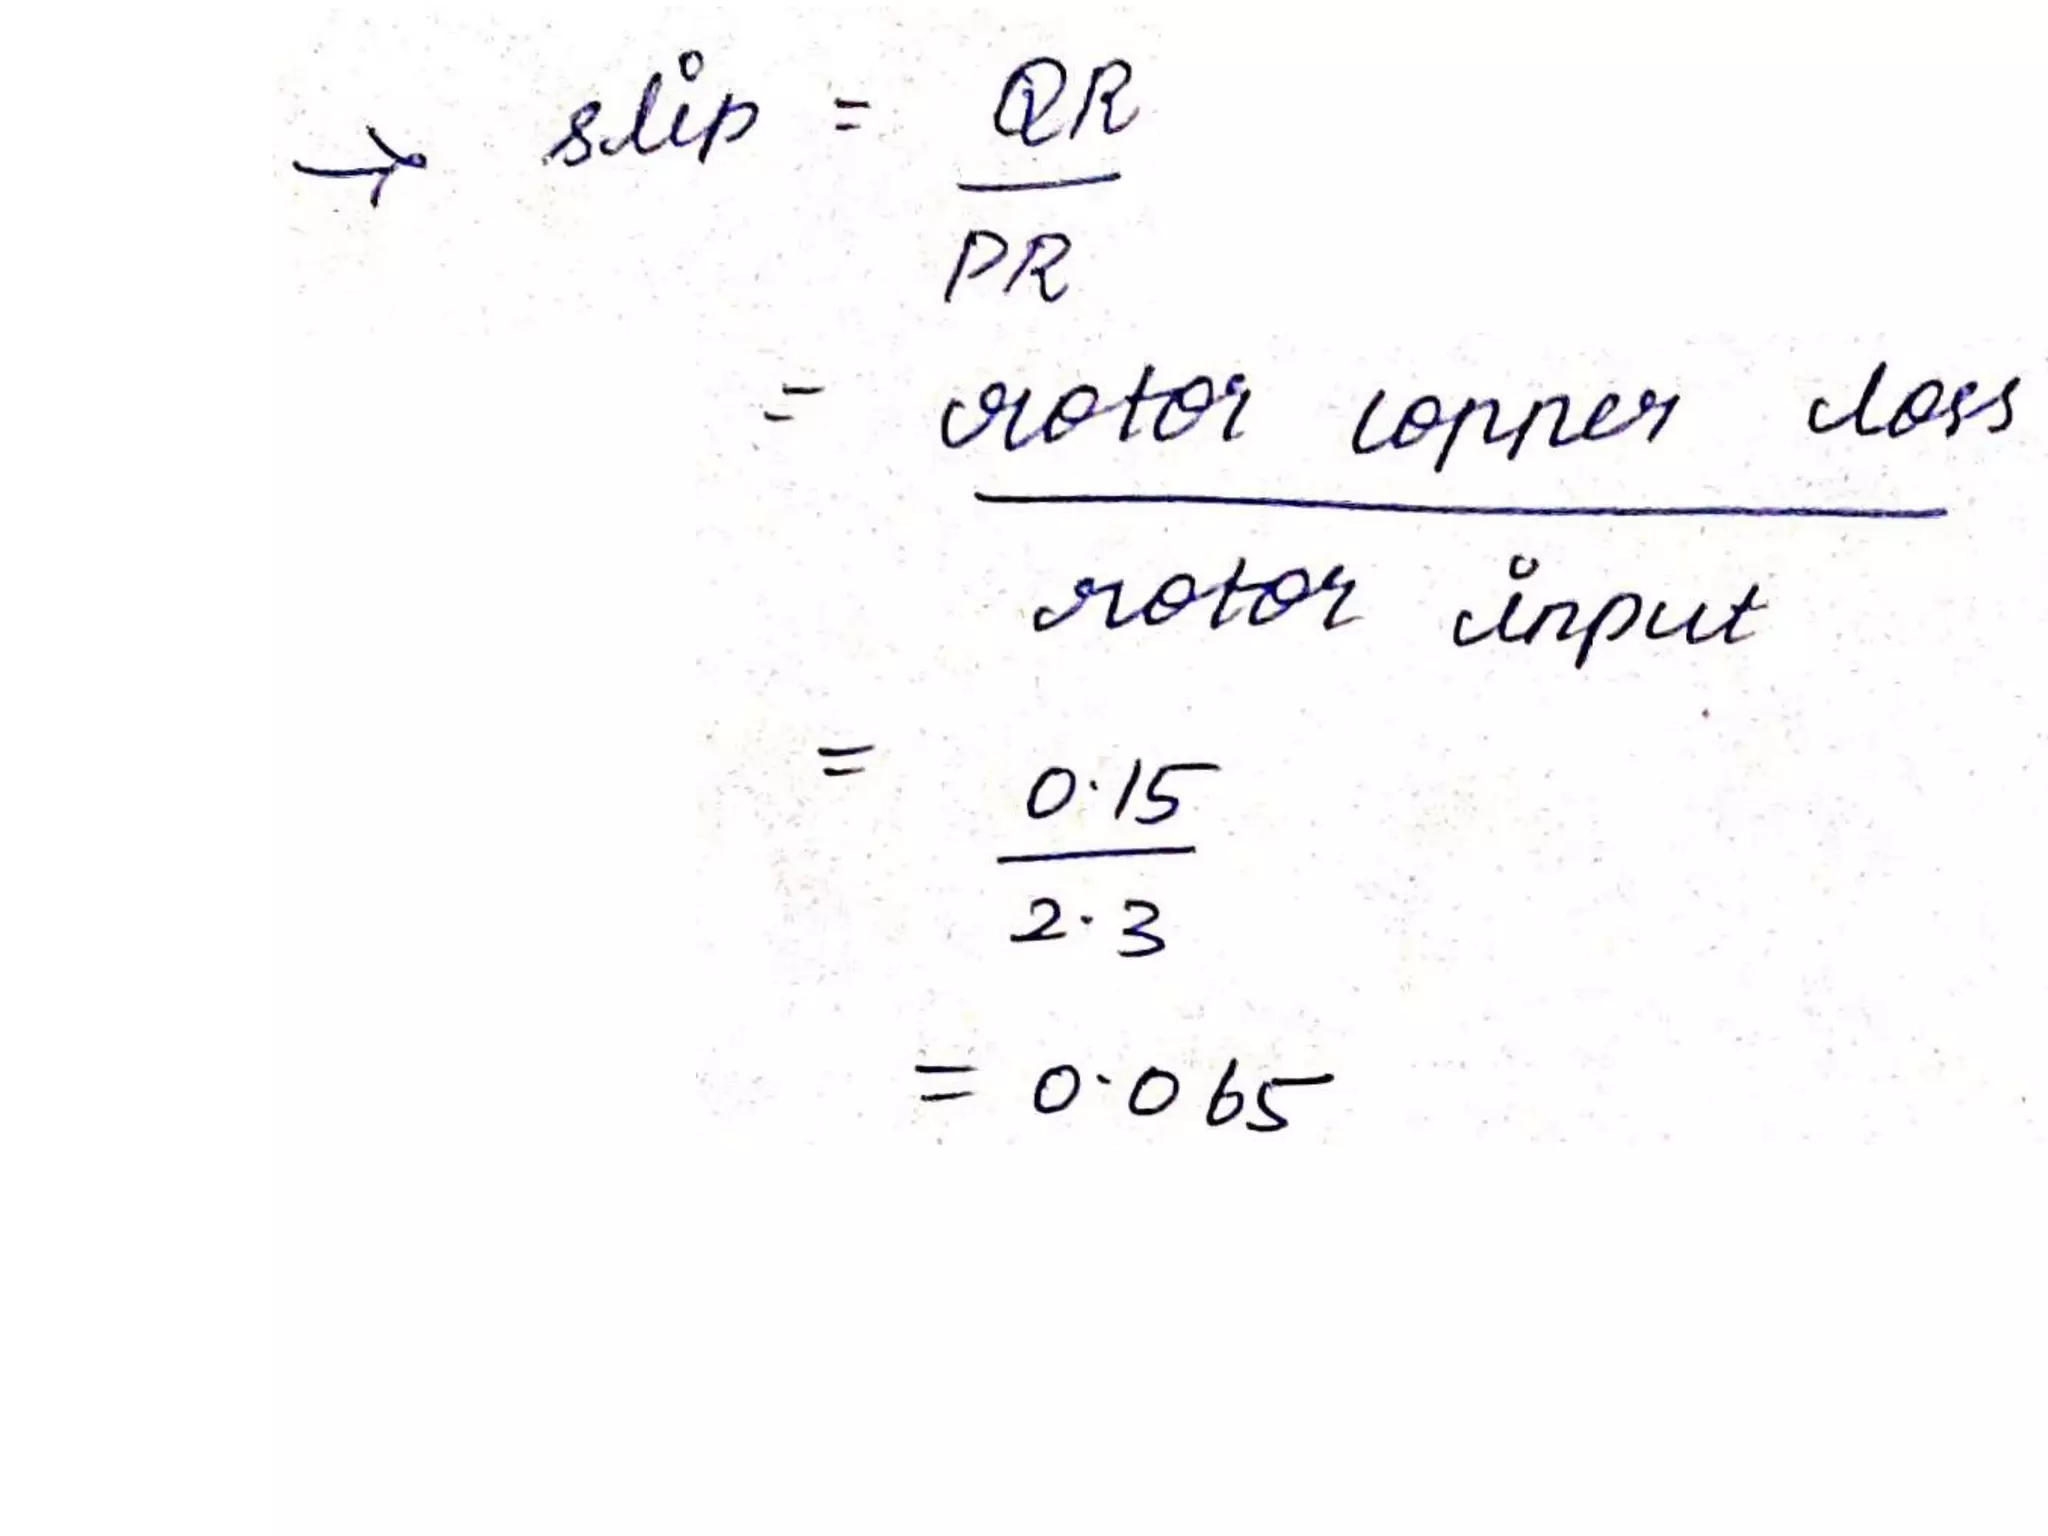 → slip = QR
PR
= rotor copper loss
rotor input
= 0.15
2.3
= 0.065